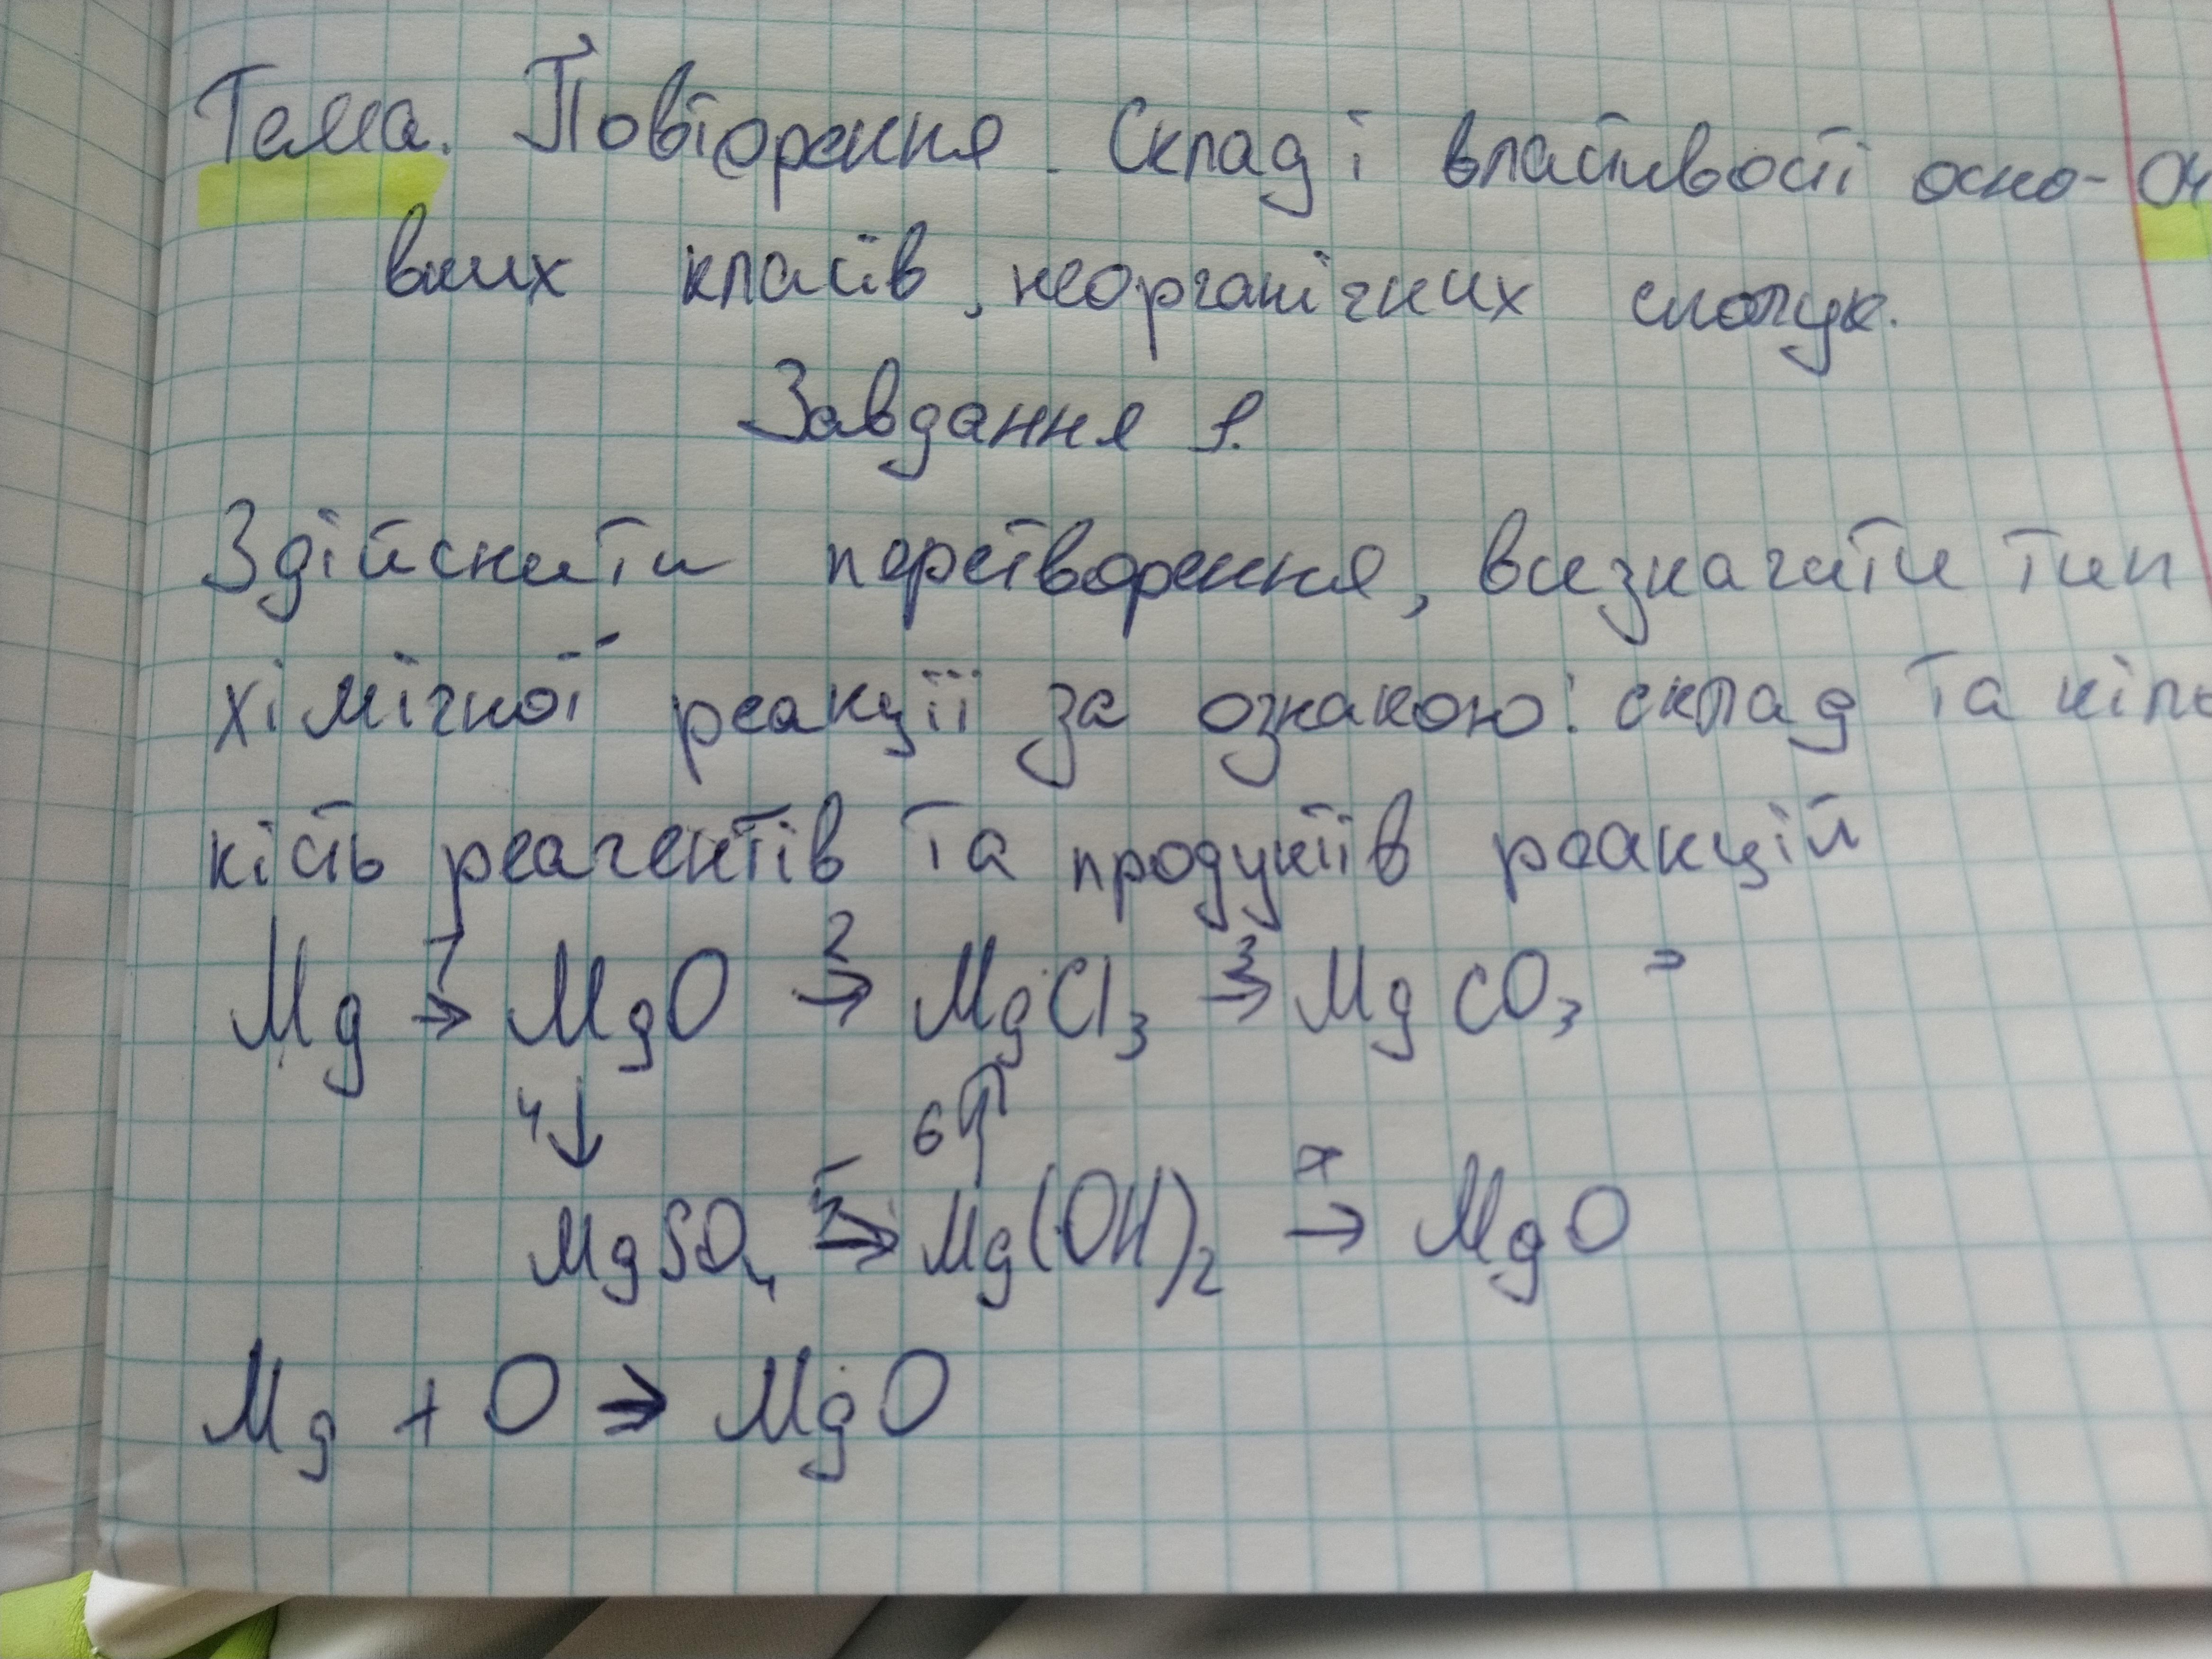 Тема. Повторення. Склад і властивості осно-
вних класів неорганічних сполук.
Завдання 1.
Здійснити перетворення, визначити тип
хімічної реакції за ознакою: склад та кіль
кість реагентів та продуктів реакцій
Mg →1 MgO →2 MgCl₃ →3 MgCO₃
4↓ 6↑
MgSO₄ →5 Mg(OH)₂ →7 MgO
Mg + O → MgO